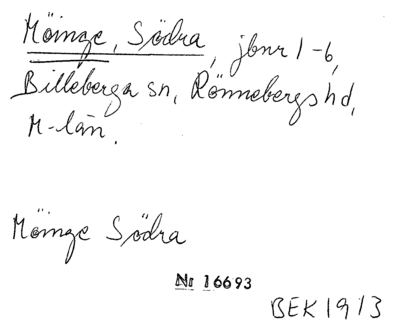 Möinge, Södra, jbnr 1-6,
Billeberga sn, Rönnebergs hd,
M-län.
Möinge Södra
Nr 16693
BEK 1913